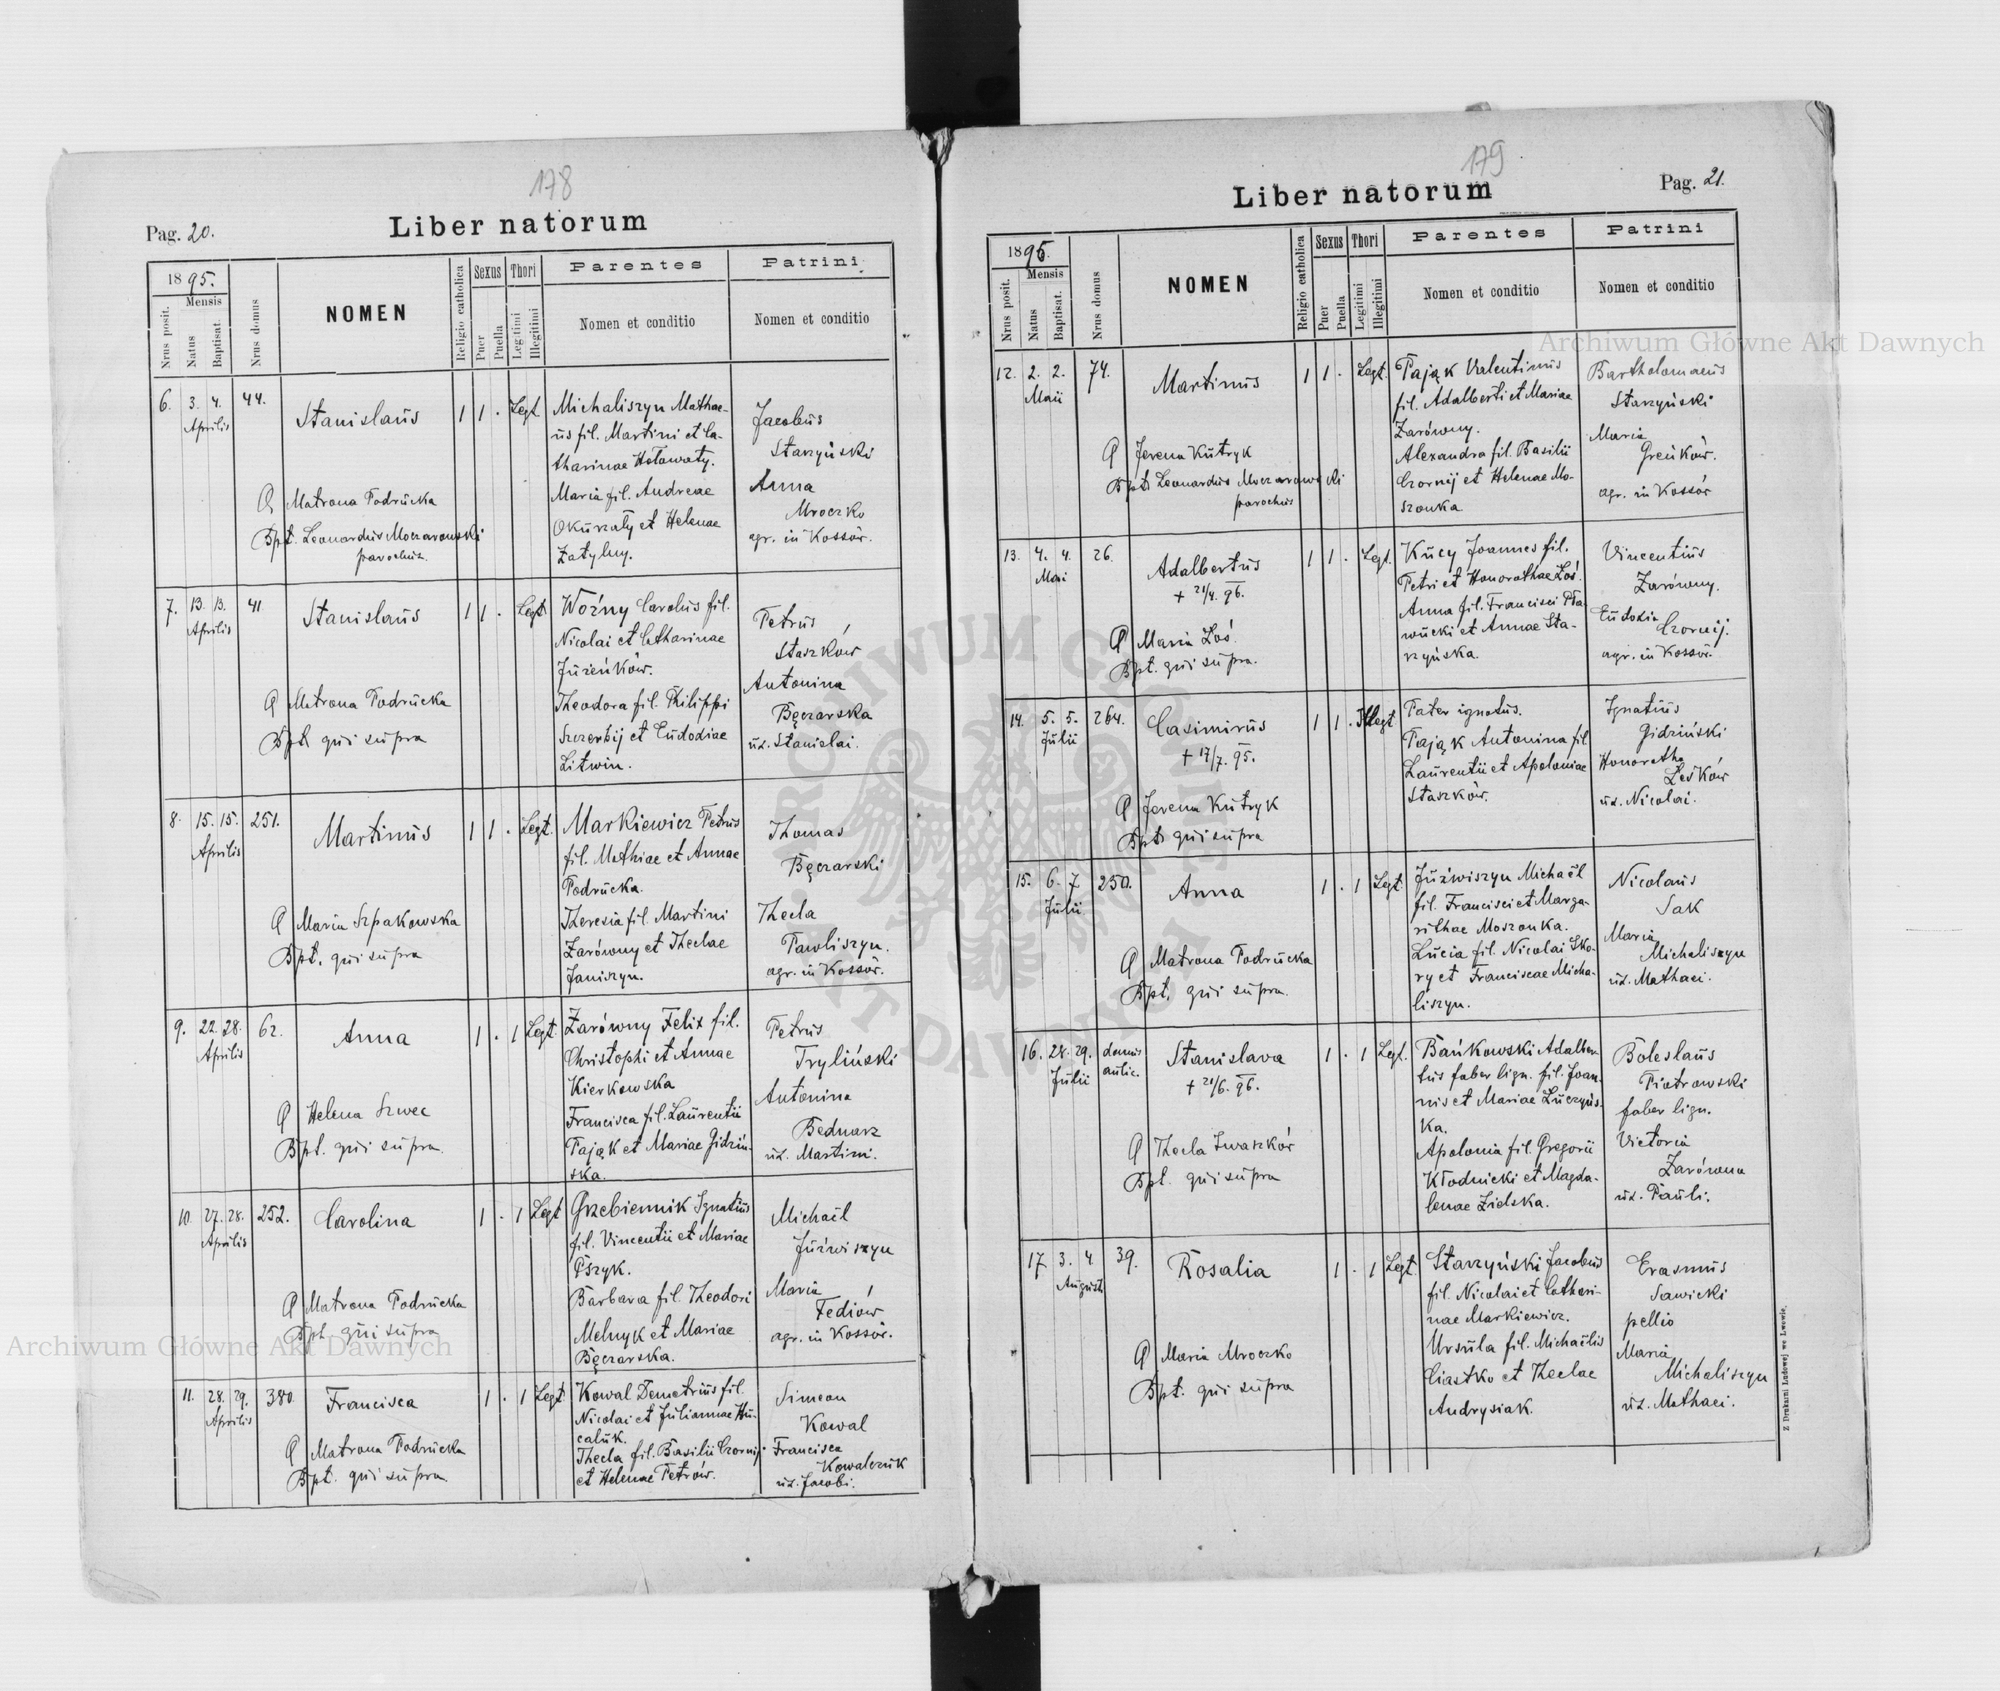 178
Pag. 20.
Liber natorum
1895.
Mensis
Nrus posit.
Natus
Baptisat.
Nrus domus
NOMEN
Religio catholica
Sexus
Puer
Puella
Thori
Legitimi
Illegitimi
Parentes
Nomen et conditio
Patrini
Nomen et conditio
6. 3. 4. 44. Stanislaus 1 1 . Legt.
Aprilis
Michaliszyn Mathae-
us fil. Martini et Ca-
tharinae Hołowaty.
Maria fil. Andreae
Okurzały et Helenae
Zatylny.
Jacobus
Starzyński
Anna
Mroczko
agr. in Kossów.
Matrona Podrucka
Bpt. Leonardus Moczarowski
parochus.
7. 13. 13. 41. Stanislaus 1 1 . Legt
Aprilis
Woźny Carolus fil.
Nicolai et Catharinae
Juzeńków.
Theodora fil. Philippi
Szczerbij et Eudodiae
Litwin.
Petrus
Staszków
Antonina
Bęczarska
ux. Stanislai.
Matrona Podrucka
Bpt. qui supra
8. 15. 15. 251. Martinus 1 1 . Legt.
Aprilis
Markiewicz Petrus
fil. Mathiae et Annae
Podrucka.
Theresia fil. Martini
Zarówny et Theclae
Janiszyn.
Thomas
Bęczarski
Thecla
Pawliszyn.
agr. in Kossów.
Maria Szpakowska
Bpt. qui supra
9. 22. 28. 62. Anna 1 . 1 Legt.
Aprilis
Zarówny Felix fil.
Christophi et Annae
Kierkowska
Francisca fil. Laurentii
Pająk et Mariae Gidziń-
ska.
Petrus
Tryliński
Antonina
Bednarz
ux. Martini.
Helena Szwec
Bpt. qui supra.
10. 27. 28. 252. Carolina 1 . 1 Legt
Aprilis
Grzebiennik Ignatius
fil. Vincentii et Mariae
Pszyk.
Barbara fil. Theodori
Melnyk et Mariae
Bęczarska.
Michaël
Juźwiszyn
Maria
Fediów
agr. in Kossów.
Matrona Podrucka
Bpt. qui supra
11. 28. 29. 380. Francisca 1 . 1 Legt.
Aprilis
Kowal Demetrius fil.
Nicolai et Juliannae Hu-
caluk.
Thecla fil. Basilii Czornij
et Helenae Petrów.
Simeon
Kowal
Francisca
Kowalczuk
ux. Jacobi.
Matrona Podrucka
Bpt. qui supra.
179
Liber natorum
Pag. 21.
1895.
Mensis
Nrus posit.
Natus
Baptisat.
Nrus domus
NOMEN
Religio catholica
Sexus
Puer
Puella
Thori
Legitimi
Illegitimi
Parentes
Nomen et conditio
Patrini
Nomen et conditio
12. 2. 2. 74. Martinus 1 1 . Legt.
Maii
Pająk Valentinus
fil. Adalberti et Mariae
Zarówny.
Alexandra fil. Basilii
Czornij et Helenae Mo-
szonka.
Bartholomaeus
Starzyński
Maria
Greńków.
agr. in Kossów
Jerena Kutryk
Bpt. Leonardus Moczarowski
parochus
13. 4. 4. 26. Adalbertus 1 1 . Legt.
Maii
+ 21/4. 96.
Kucy Joannes fil.
Petri et Honorathae Łoś.
Anna fil. Francisci Pła-
wucki et Annae Sta-
rzyńska.
Vincentius
Zarówny.
Eudoxia
Czornij.
agr. in Kossów.
Maria Łoś.
Bpt. qui supra.
14. 5. 5. 264. Casimirus 1 1 . Illegt
Julii
+ 17/7. 95.
Pater ignotus.
Pająk Antonina fil
Laurentii et Apoloniae
Staszków.
Ignatius
Gidziński
Honoratha
Leśków
ux. Nicolai.
Jerena Kutryk
Bpt. qui supra
15. 6. 7 250. Anna 1 . 1 Legt.
Julii
Juźwiszyn Michaël
fil. Francisci et Marga-
rithae Moszonka.
Lucia fil. Nicolai Sko-
ry et Franciscae Micha-
liszyn.
Nicolaus
Sak
Maria
Michaliszyn
ux. Mathaei.
Matrona Podrucka
Bpt. qui supra.
16. 28. 29. domus aulic. Stanislava 1 . 1 Legt.
Julii
+ 21/6. 96.
Bańkowski Adalber-
tus faber lign. fil. Joan-
nis et Mariae Łuczyńs-
ka.
Apolonia fil. Gregorii
Kłodnicki et Magda-
lenae Zielska.
Boleslaus
Piotrowski
faber lign.
Victoria
Zarówna
ux. Pauli.
Thecla Iwaszków
Bpt. qui supra
17 3. 4. 39. Rosalia 1 . 1 Legt.
Augusti
Starzyński Jacobus
fil. Nicolai et Cathari-
nae Markiewicz.
Ursula fil. Michaëlis
Ciastko et Theclae
Andrysiak.
Erasmus
Sawicki
pellio
Maria
Michaliszyn
ux. Mathaei.
Maria Mroczko
Bpt. qui supra
Z Drukarni Ludowej we Lwowie.
Archiwum Główne Akt Dawnych
Archiwum Główne Akt Dawnych
ARCHIWUM GŁÓWNE AKT DAWNYCH